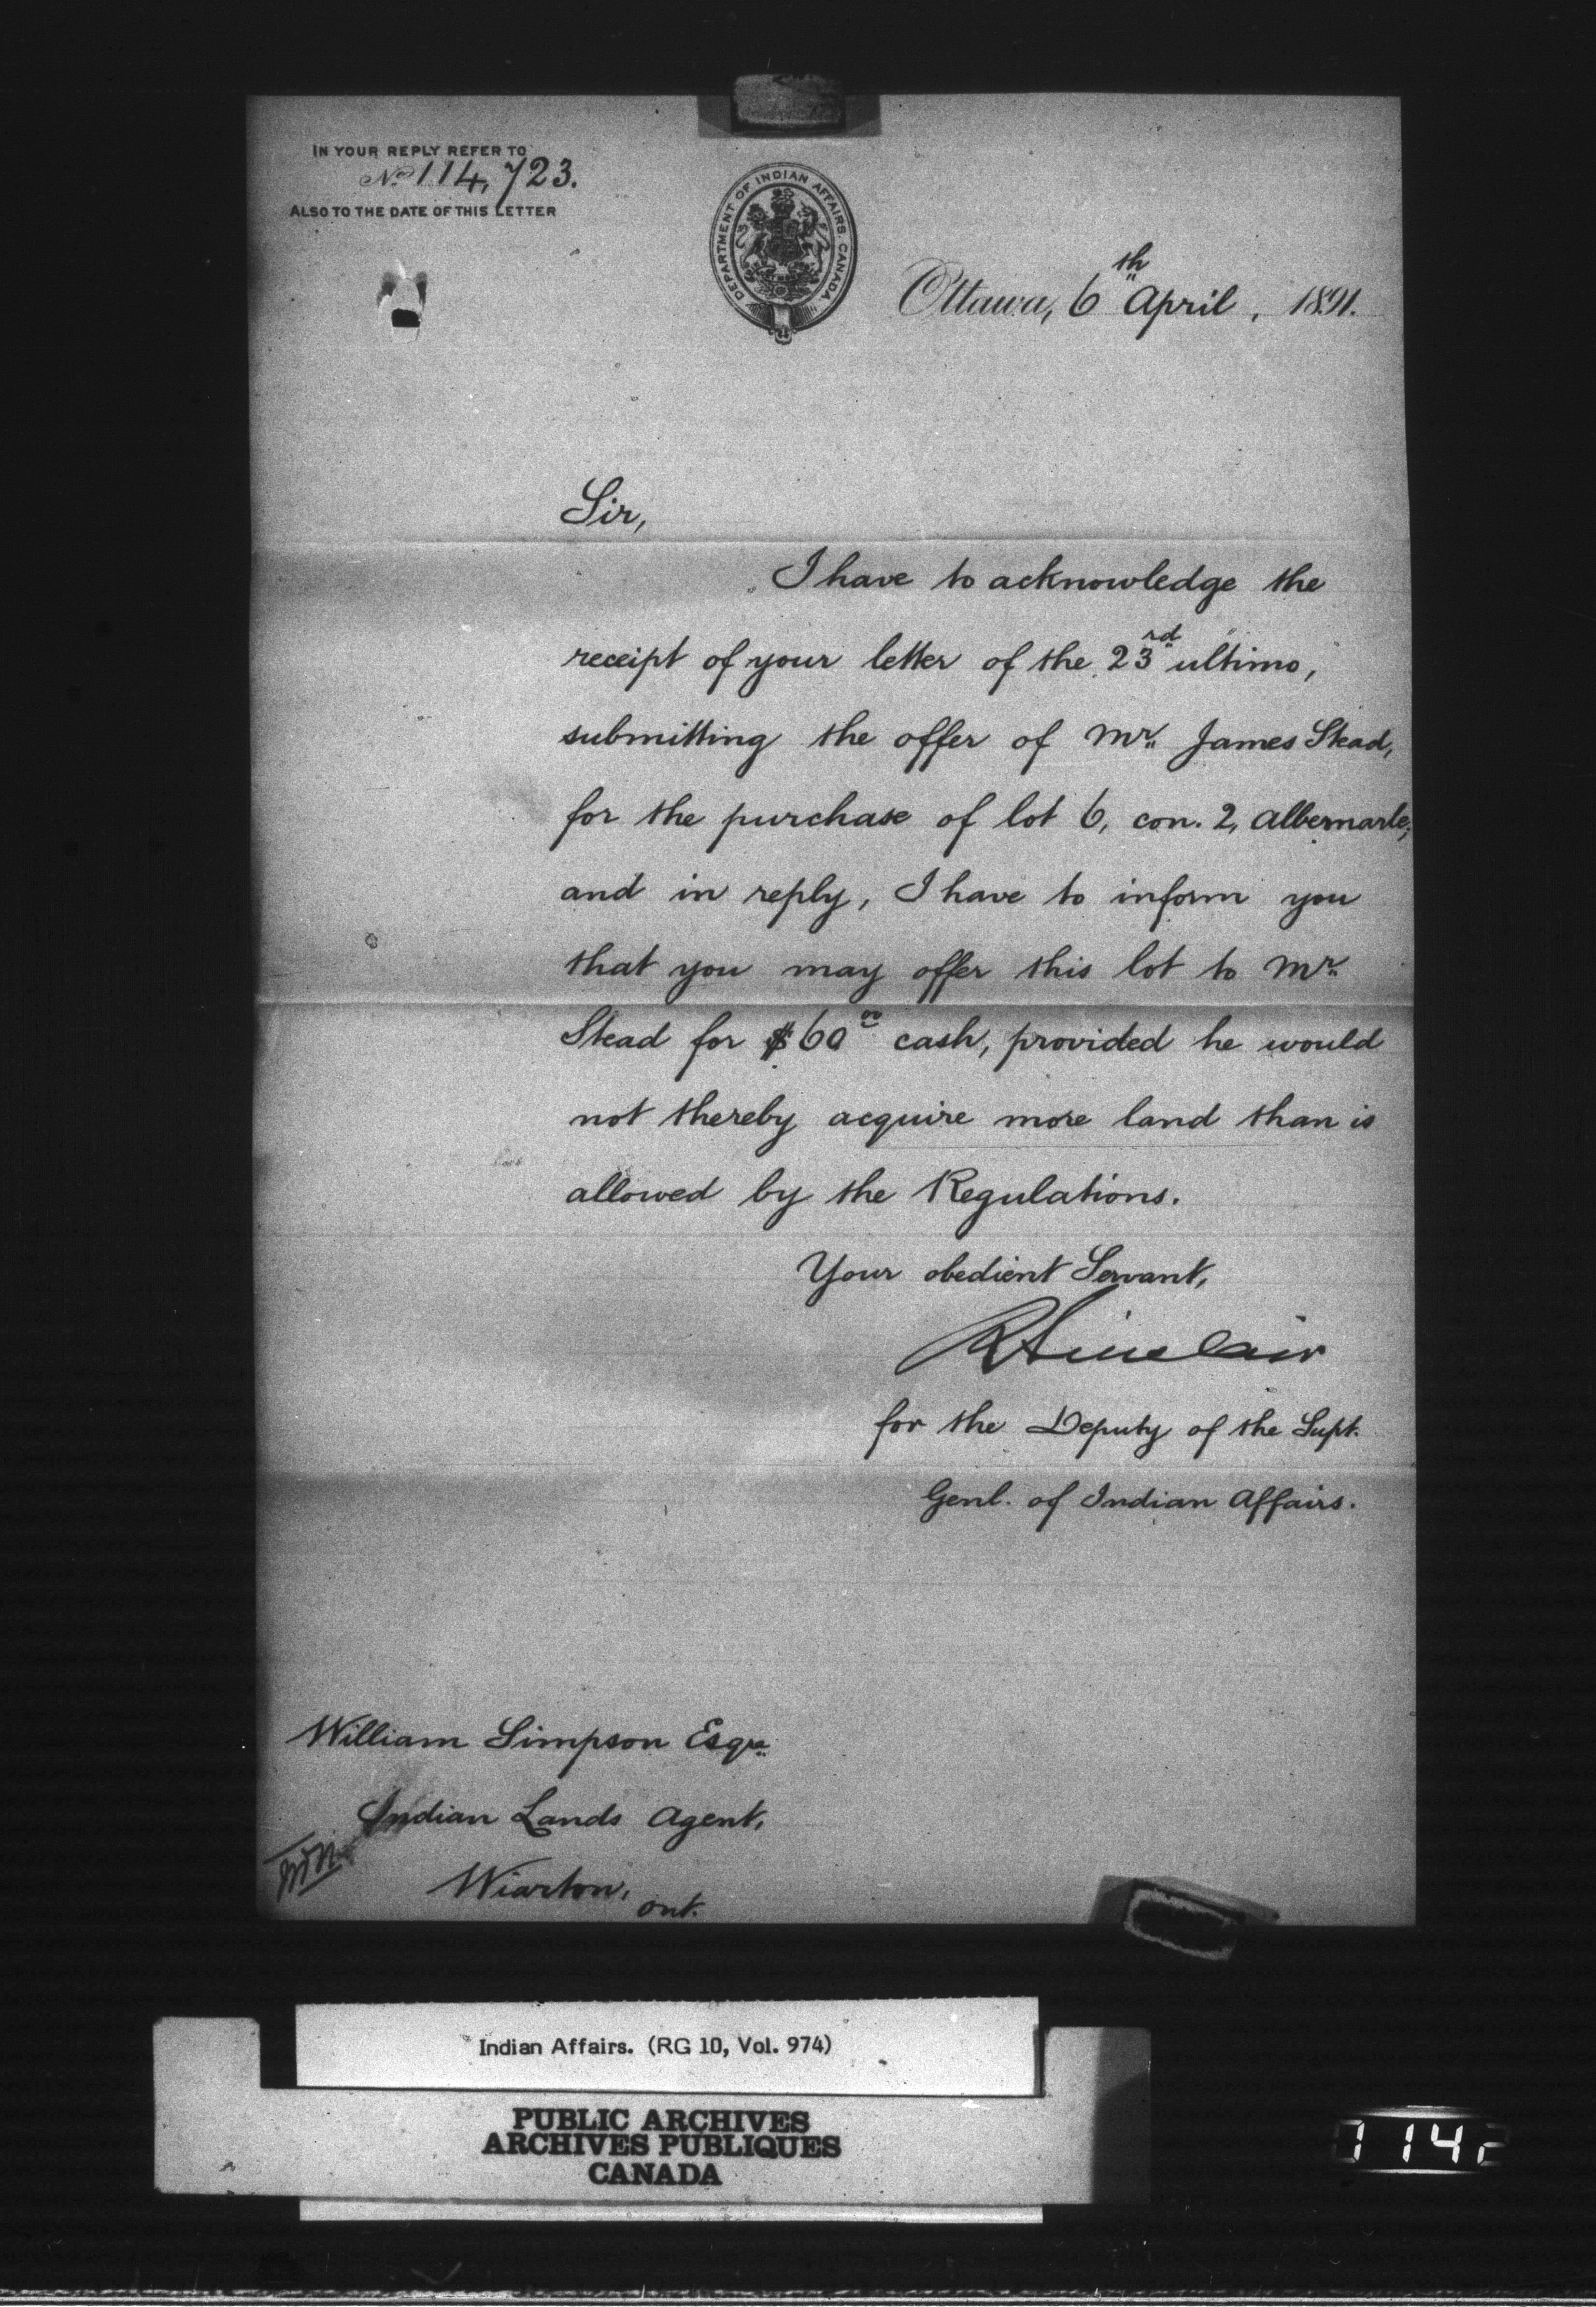 IN YOUR REPLY REFER TO
No. 114,723.
ALSO TO THE DATE OF THIS LETTER
DEPARTMENT OF INDIAN AFFAIRS. CANADA
Ottawa, 6th April, 1891.
Sir,
I have to acknowledge the
receipt of your letter of the 23rd ultimo,
submitting the offer of Mr. James Stead,
for the purchase of lot 6, con. 2, Albemarle;
and in reply, I have to inform you
that you may offer this lot to Mr.
Stead for $60 00 cash, provided he would
not thereby acquire more land than is
allowed by the Regulations.
Your obedient Servant,
R Sinclair
for the Deputy of the Supt.
Genl. of Indian Affairs.
William Simpson Esqre.
Indian Lands Agent,
Wiarton,
Ont.
Indian Affairs. (RG 10, Vol. 974)
PUBLIC ARCHIVES
ARCHIVES PUBLIQUES
CANADA